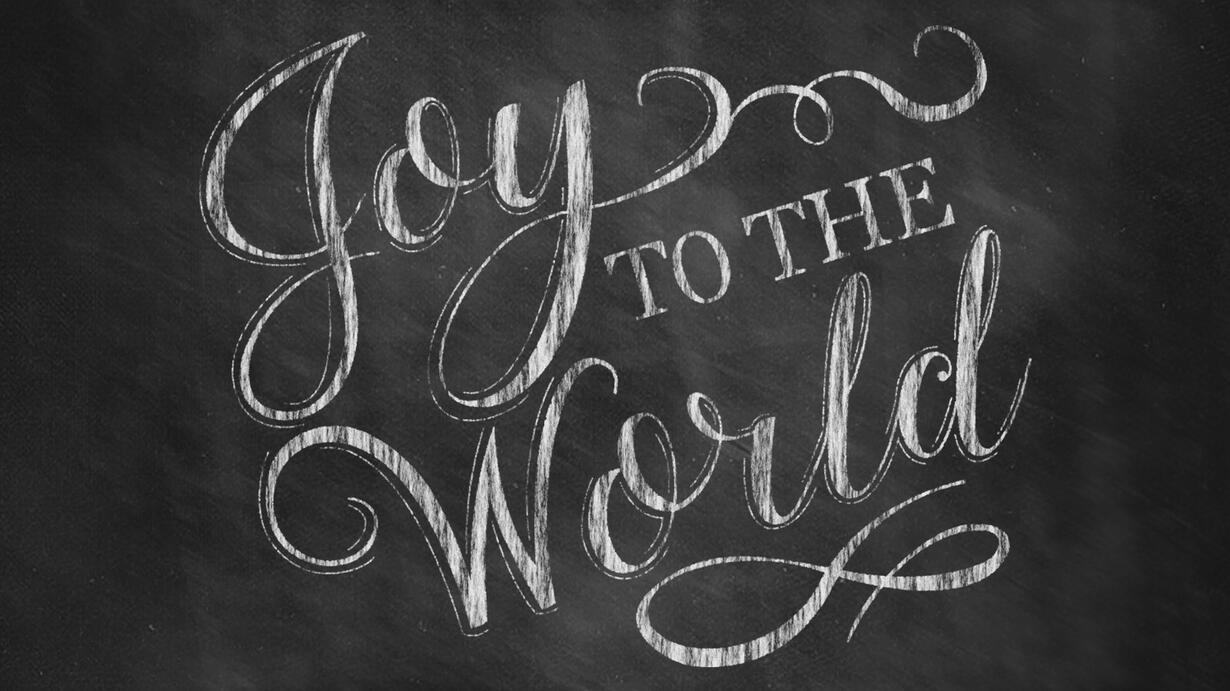 Joy
TO THE
World